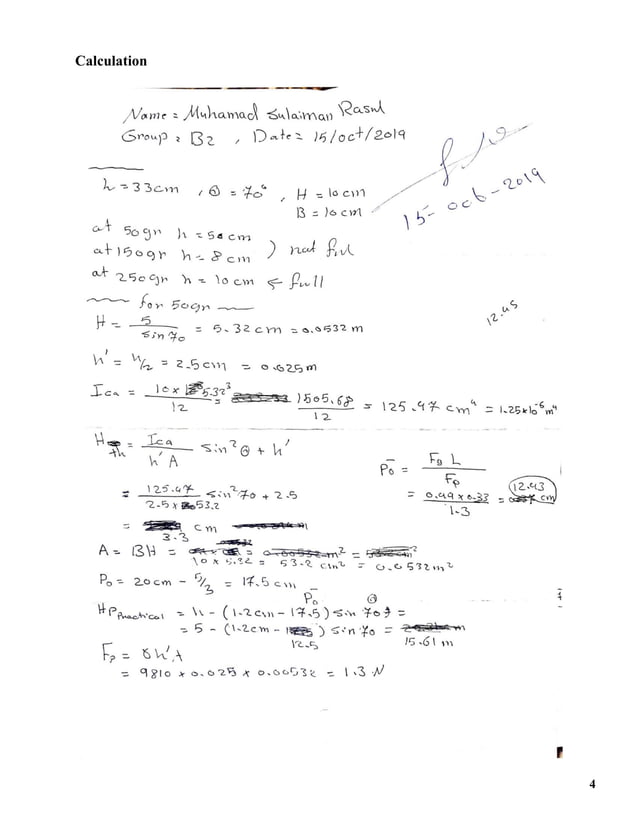 Calculation
Name = Muhamad Sulaiman Rasul
Group : B2 , Date = 15/oct/2019
15-oct-2019
h = 33cm , Θ = 70° , H = 10cm
B = 10cm
at 50gr h = 5cm
at 150gr h = 8cm ) not full
at 250gr h = 10cm ← full
for 50gr
12.45
H = 5/sin 70 = 5.32cm = 0.0532 m
h' = h/2 = 2.5cm = 0.025m
Ica = 10 x 5.32³/12 = 1505.68/12 = 125.47 cm⁴ = 1.25x10⁻⁶ m⁴
Hth = Ica/h'A sin²Θ + h'
= 125.47/2.5 x 53.2 sin²70 + 2.5
= 3.3 cm
P̄o = FgL/Fp
= 0.49 x 0.33/1.3 = 12.43 cm
A = BH = 10 x 5.32 = 53.2 cm² = 0.0532m²
Po = 20cm - 5/3 = 17.5cm
HP Practical = h - (1.2cm - 17.5) sin 70 =
P̄o
= 5 - (1.2cm - 12.5) sin 70 = 15.61 m
Fp = γh'A
= 9810 x 0.025 x 0.00532 = 1.3 N
4